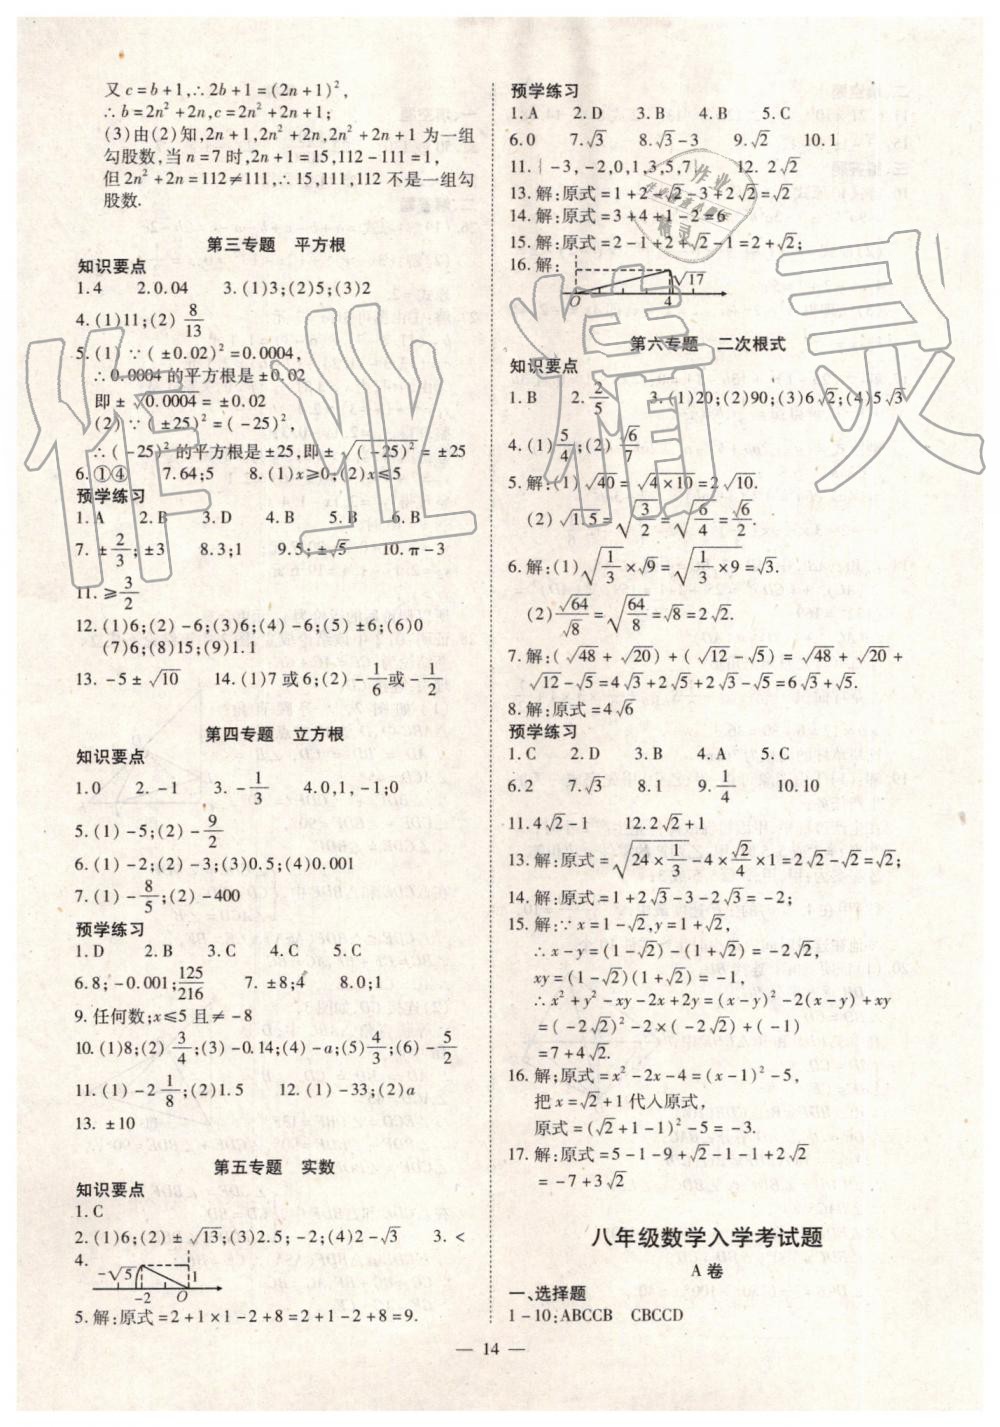 又c=b+1,∴2b+1=(2n+1)²,
∴b=2n²+2n,c=2n²+2n+1;
(3)由(2)知,2n+1,2n²+2n,2n²+2n+1 为一组
勾股数,当 n=7 时,2n+1=15,112-111=1,
但2n²+2n=112≠111,∴15,111,112 不是一组勾
股数.
第三专题 平方根
知识要点
1.4 2.0.04 3.(1)3;(2)5;(3)2
4.(1)11;(2) 8/13
5.(1)∵(±0.02)²=0.0004,
∴0.0004的平方根是±0.02
即±√0.0004=±0.02
(2)∵(±25)²=(-25)²,
∴(-25)²的平方根是±25,即±√(-25)²=±25
6.①④ 7.64;5 8.(1)x≥0;(2)x≤5
预学练习
1.A 2.B 3.D 4.B 5.B 6.B
7.±2/3;±3 8.3;1 9.5;±√5 10.π-3
11.≥3/2
12.(1)6;(2)-6;(3)6;(4)-6;(5)±6;(6)0
(7)6;(8)15;(9)1.1
13.-5±√10 14.(1)7或6;(2)-1/6或-1/2
第四专题 立方根
知识要点
1.0 2.-1 3.-1/3 4.0,1,-1;0
5.(1)-5;(2)-9/2
6.(1)-2;(2)-3;(3)0.5;(4)0.001
7.(1)-8/5;(2)-400
预学练习
1.D 2.B 3.C 4.C 5.C
6.8;-0.001;125/216 7.±8;4 8.0;1
9.任何数;x≤5且≠-8
10.(1)8;(2)3/4;(3)-0.14;(4)-a;(5)4/3;(6)-5/2
11.(1)-2 1/8;(2)1.5 12.(1)-33;(2)a
13.±10
第五专题 实数
知识要点
1.C
2.(1)6;(2)±√13;(3)2.5;-2;(4)2-√3 3.<
4. -√5 1 -2 O
5.解:原式=2+1×1-2+8=2+1-2+8=9.
预学练习
1.A 2.D 3.B 4.B 5.C
6.0 7.√3 8.√3-3 9.√2 10.1
11.{-3,-2,0,1,3,5,7} 12.2√2
13.解:原式=1+2-√2-3+2√2=√2
14.解:原式=3+4+1-2=6
15.解:原式=2-1+2+√2-1=2+√2;
16.解: O 4 √17
第六专题 二次根式
知识要点
1.B 2.2/5 3.(1)20;(2)90;(3)6√2;(4)5√3
4.(1)5/4;(2)√6/7
5.解:(1)√40=√4×10=2√10.
(2)√1.5=√3/2=√6/4=√6/2.
6.解:(1)√1/3×√9=√1/3×9=√3.
(2)√64/√8=√64/8=√8=2√2.
7.解:(√48+√20)+(√12-√5)=√48+√20+
√12-√5=4√3+2√5+2√3-√5=6√3+√5.
8.解:原式=4√6
预学练习
1.C 2.D 3.B 4.A 5.C
6.2 7.√3 8.1 9.1/4 10.10
11.4√2-1 12.2√2+1
13.解:原式=√24×1/3-4×√2/4×1=2√2-√2=√2;
14.解:原式=1+2√3-3-2√3=-2;
15.解:∵x=1-√2,y=1+√2,
∴x-y=(1-√2)-(1+√2)=-2√2,
xy=(1-√2)(1+√2)=-1,
∴x²+y²-xy-2x+2y=(x-y)²-2(x-y)+xy
=(-2√2)²-2×(-2√2)+(-1)
=7+4√2.
16.解:原式=x²-2x-4=(x-1)²-5,
把x=√2+1代入原式,
原式=(√2+1-1)²-5=-3.
17.解:原式=5-1-9+√2-1-1+2√2
=-7+3√2
八年级数学入学考试题
A卷
一、选择题
1-10:ABCCB CBCCD
— 14 —
作业精灵